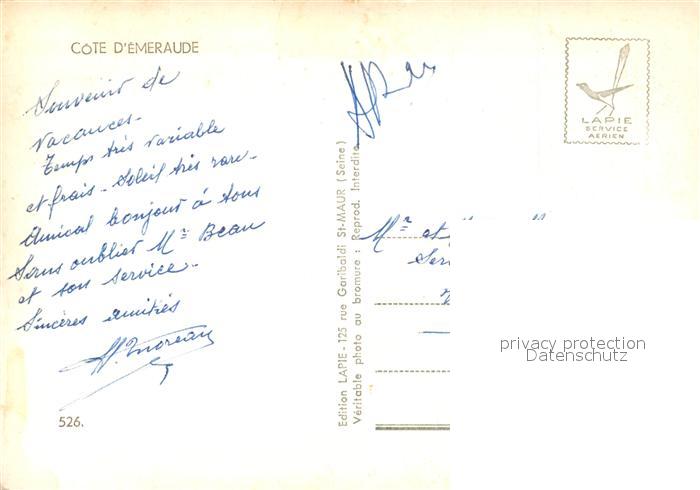 COTE D'ÉMERAUDE
Souvenir de
vacances-
Temps très variable
et frais - Soleil très rare -
Amical bonjour à tous
Sans oublier Mr Beau
et son service -
Sincères amitiés
526.
Edition LAPIE - 125 rue Garibaldi St-MAUR (Seine)
Véritable photo au bromure : Reprod. Interdite
LAPIE
SERVICE
AERIEN
Mr et
privacy protection
Datenschutz